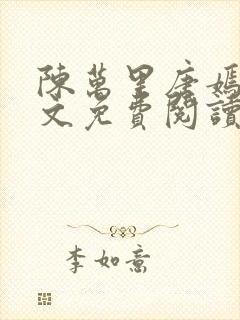 陳萬里唐嫣
文免費閱讀
李如意